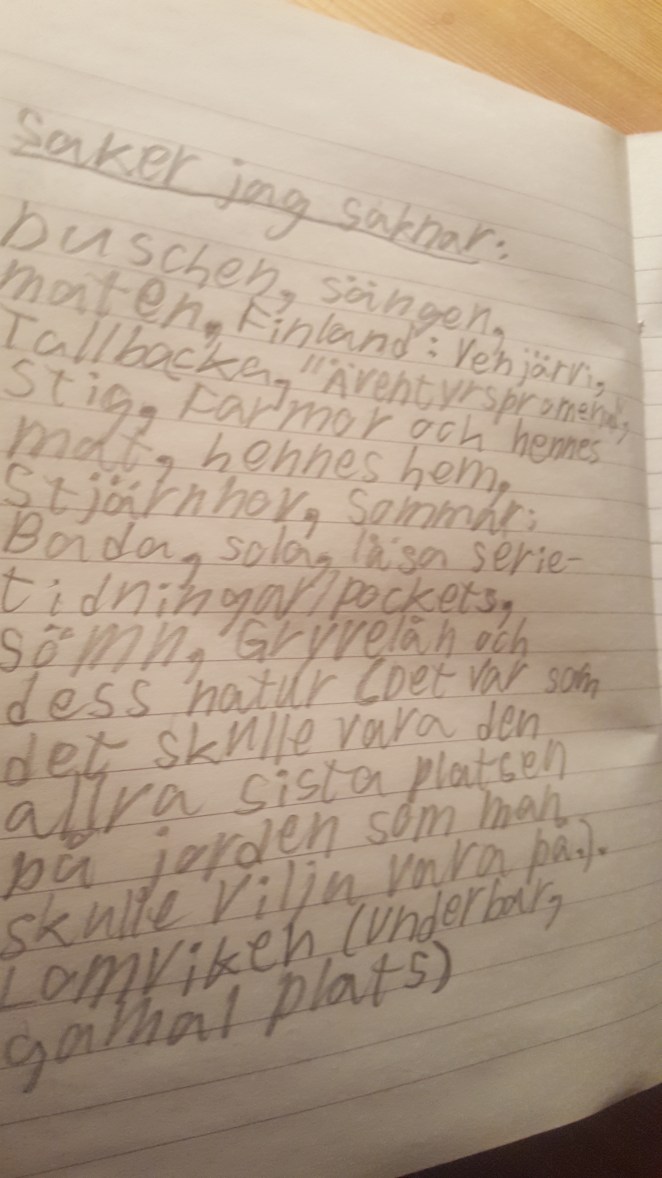 Saker jag saknar:
Duschen, sängen,
maten, Finland: Vehjärvi,
Tallbacka, "Äventyrspromenad",
Stig, Farmor och hennes
mat, hennes hem,
Stjärnhov, Sommar:
Bada, sola, läsa serie-
tidningar/pockets,
sömn, Gryvelån och
dess natur (Det var som
det skulle vara den
allra sista platsen
på jorden som man
skulle vilja vara på.).
Lomviken (underbar,
gammal plats)